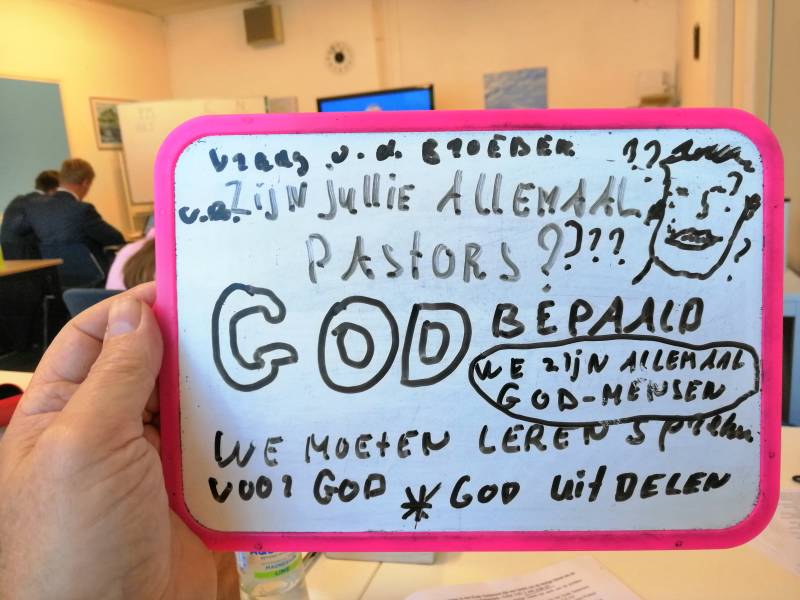 vraag v.d. BROEDER ??
v.a. Zijn jullie ALLEMAAL
PASTORS????
GOD BEPAALD
WE zijn ALLEMAAL
GOD-MENSEN
WE MOETEN LEREN SpreKen
voor GOD * GOD uitDELEN